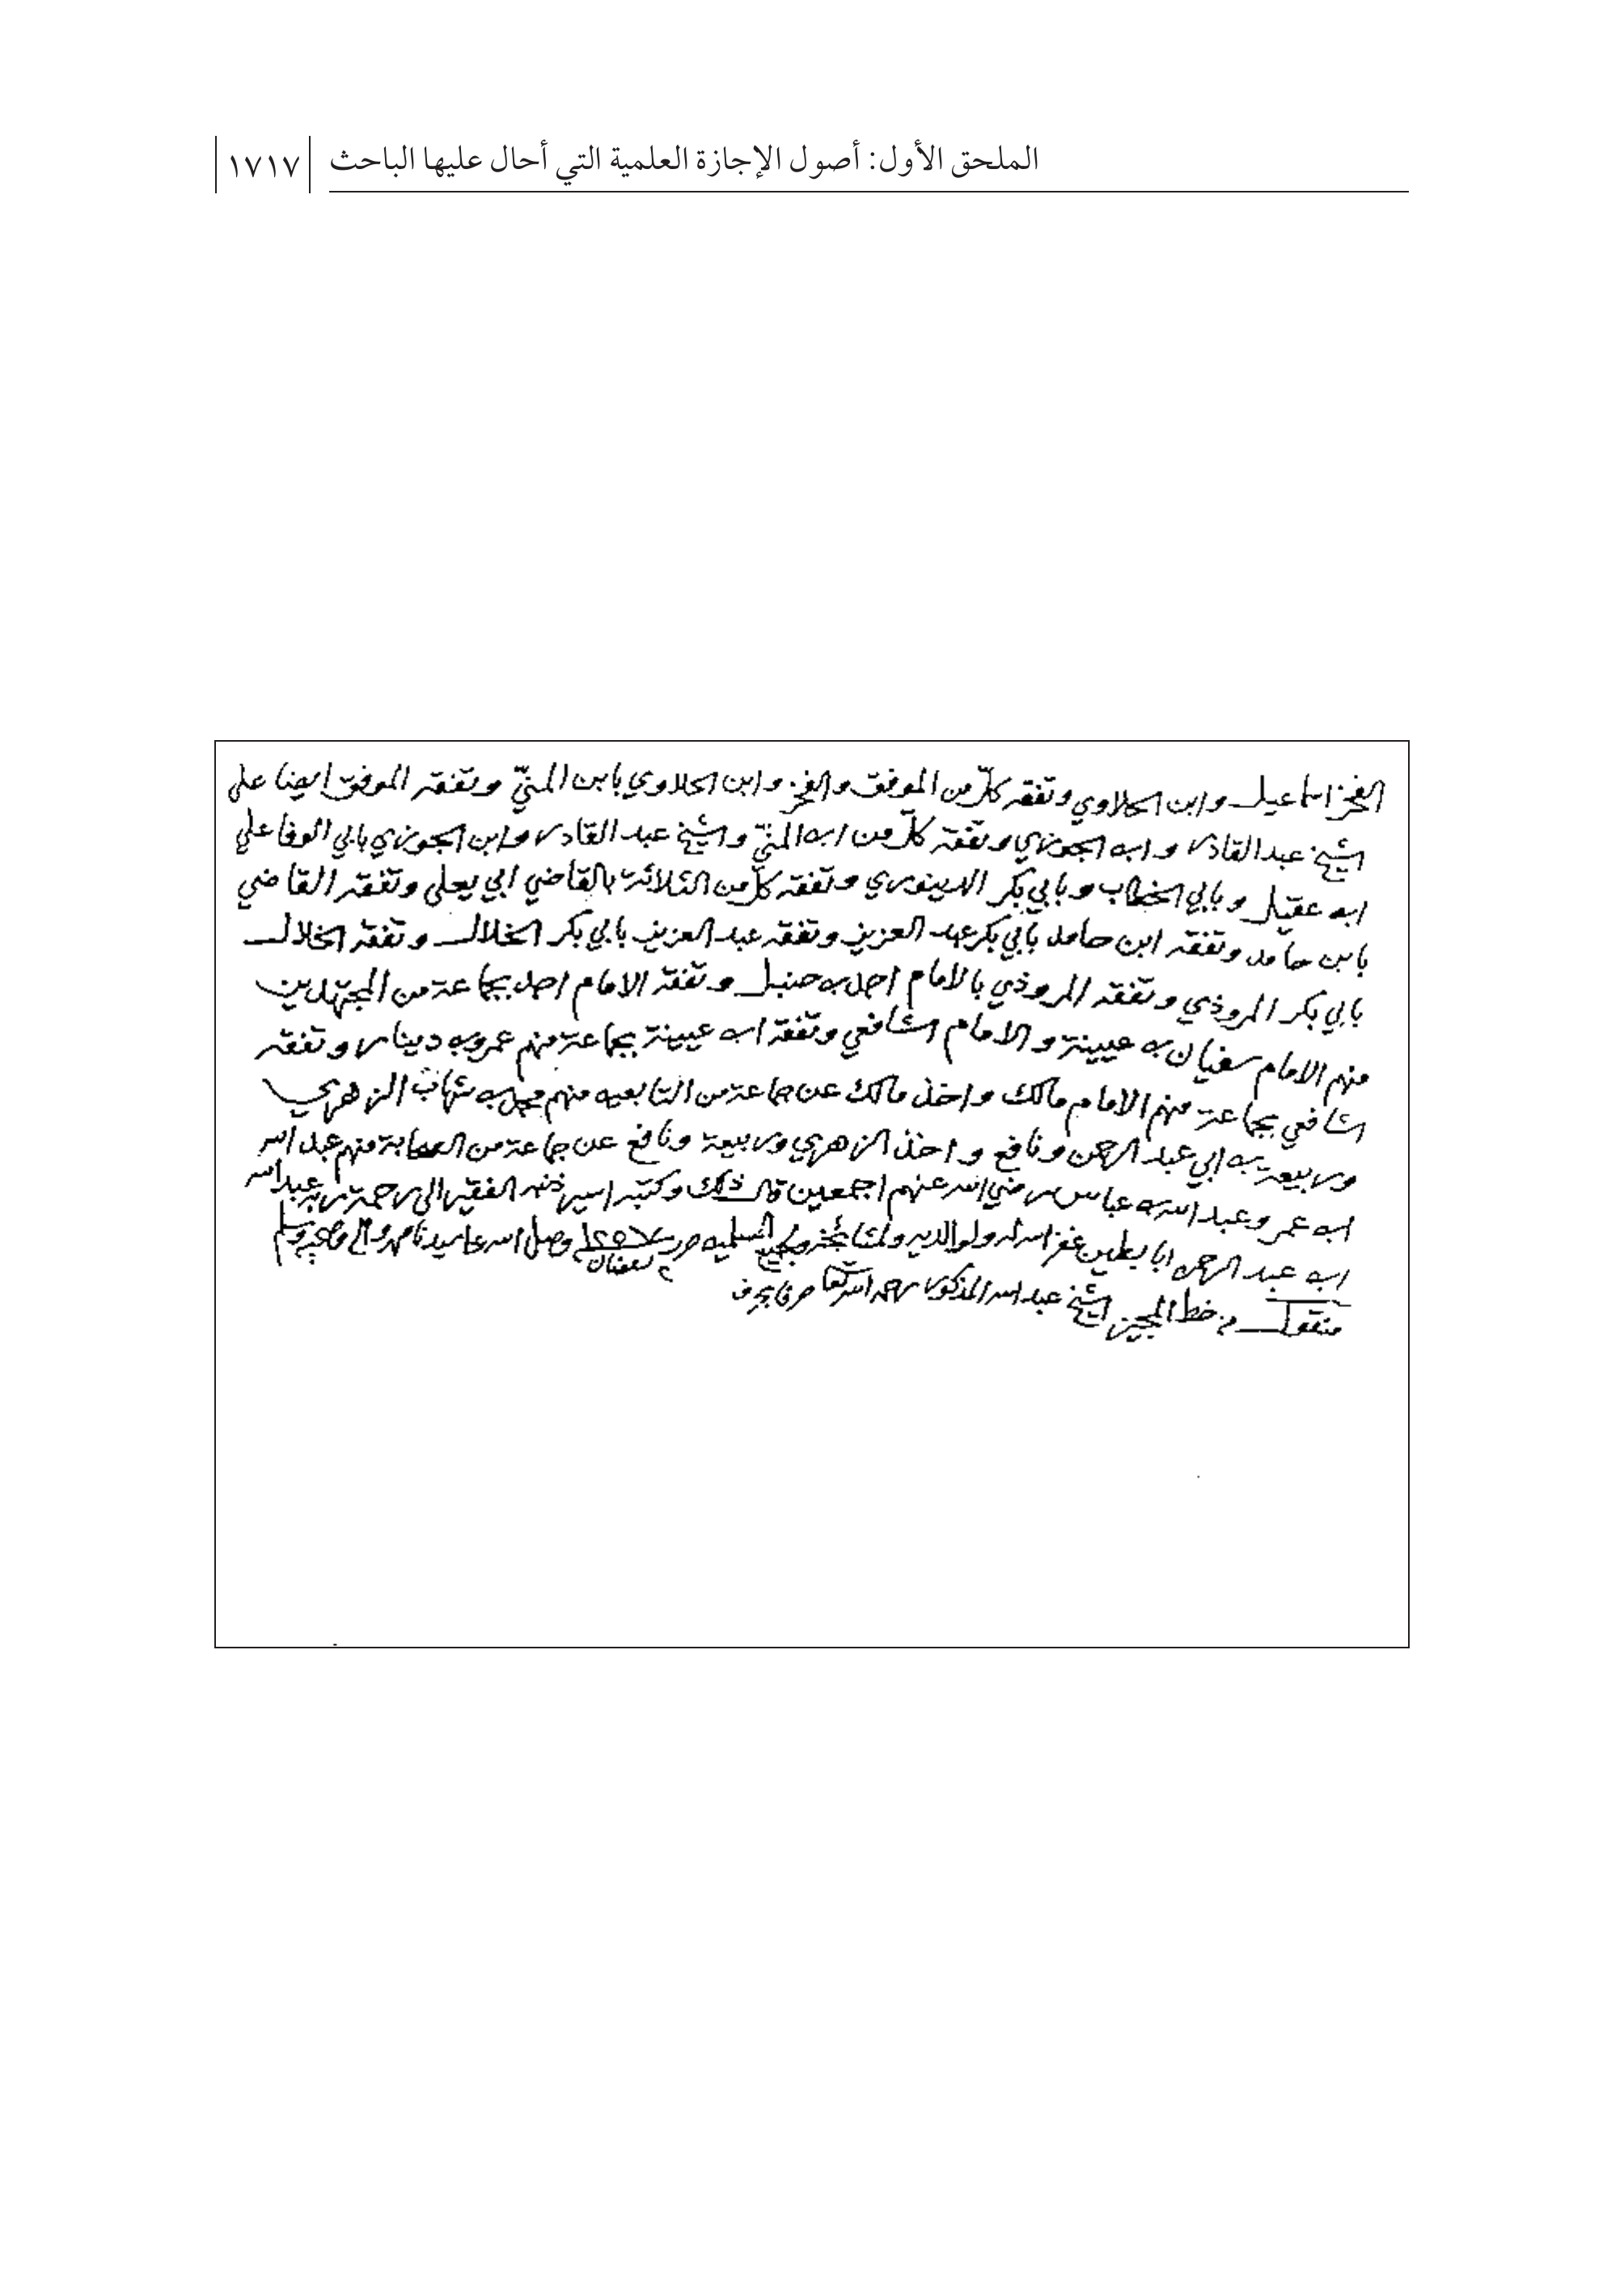 الملحق الأول: أصول الإجازة العلمية التي أحال عليها الباحث ١٧١٧
الفخر اسماعيل وابن الحلاوي وتفقه كلّ من الموفق والفخر وابن الحلاوي بابن المنيّ وتفقه الموفق ايضا على
الشيخ عبد القادر وابن الجوزي وتفقه كلّ من ابن المنيّ والشيخ عبد القادر وابن الجوزي بابي الوفا علي
ابن عقيل وبابي الخطاب وبابي بكر الدينوري وتفقه كلّ من الثلاثة بالقاضي ابي يعلى وتفقه القاضي
بابن حامد وتفقه ابن حامد بابي بكر عبد العزيز وتفقه عبد العزيز بابي بكر الخلال وتفقه الخلال
بابي بكر المروذي وتفقه المروذي بالامام احمد بن حنبل وتفقه الامام احمد بجماعة من المجتهدين
منهم الامام سفيان بن عيينة والامام الشافعي وتفقه ابن عيينة بجماعة منهم عمرو بن دينار وتفقه
الشافعي بجماعة منهم الامام مالك واخذ مالك عن جماعة من التابعين منهم محمد بن شهاب الزهري
وربيعة بن ابي عبد الرحمن ونافع واخذ الزهري وربيعة ونافع عن جماعة من الصحابة منهم عبد الله
ابن عمر وعبد الله بن عباس رضي الله عنهم اجمعين قال ذلك وكتبه اسير ذنبه الفقير الى رحمة ربه عبد الله
ابن عبد الرحمن ابا بطين غفر الله له ولوالديه ولمشايخه ولجميع المسلمين حرر وصلى الله على سيدنا محمد واله وصحبه وسلم
رمضان
منقول من خط المجيز الشيخ عبد الله المذكور رحمه الله تعالى حرفا بحرف